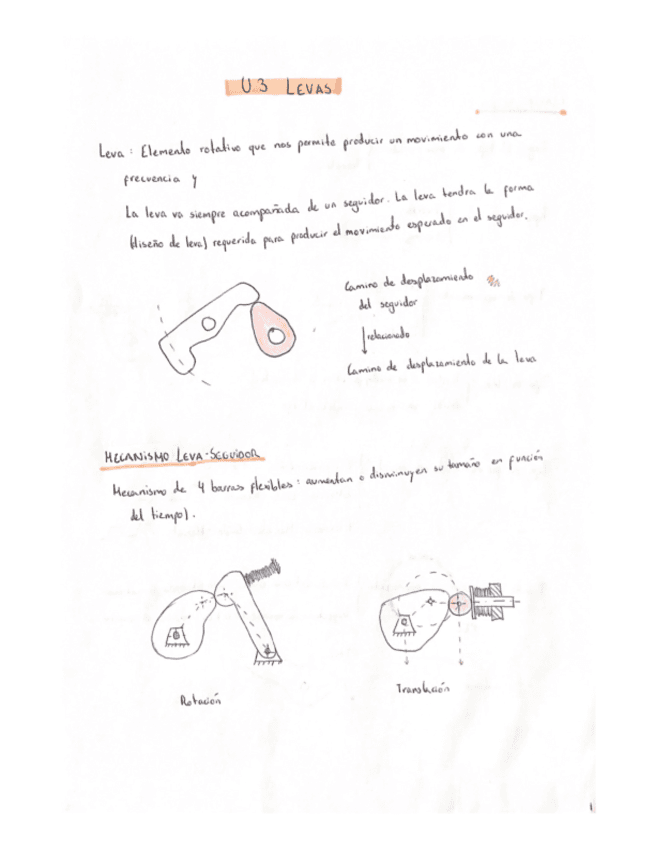 U.3 LEVAS
Leva : Elemento rotativo que nos permite producir un movimiento con una
frecuencia y
La leva va siempre acompañada de un seguidor. La leva tendra la forma
(diseño de leva) requerida para producir el movimiento esperado en el seguidor.
Camino de desplazamiento
del seguidor
relacionado
Camino de desplazamiento de la leva
MECANISMO LEVA-SEGUIDOR
Mecanismo de 4 barras flexibles : aumentan o disminuyen su tamaño en función
del tiempo).
Rotación
Translación
1